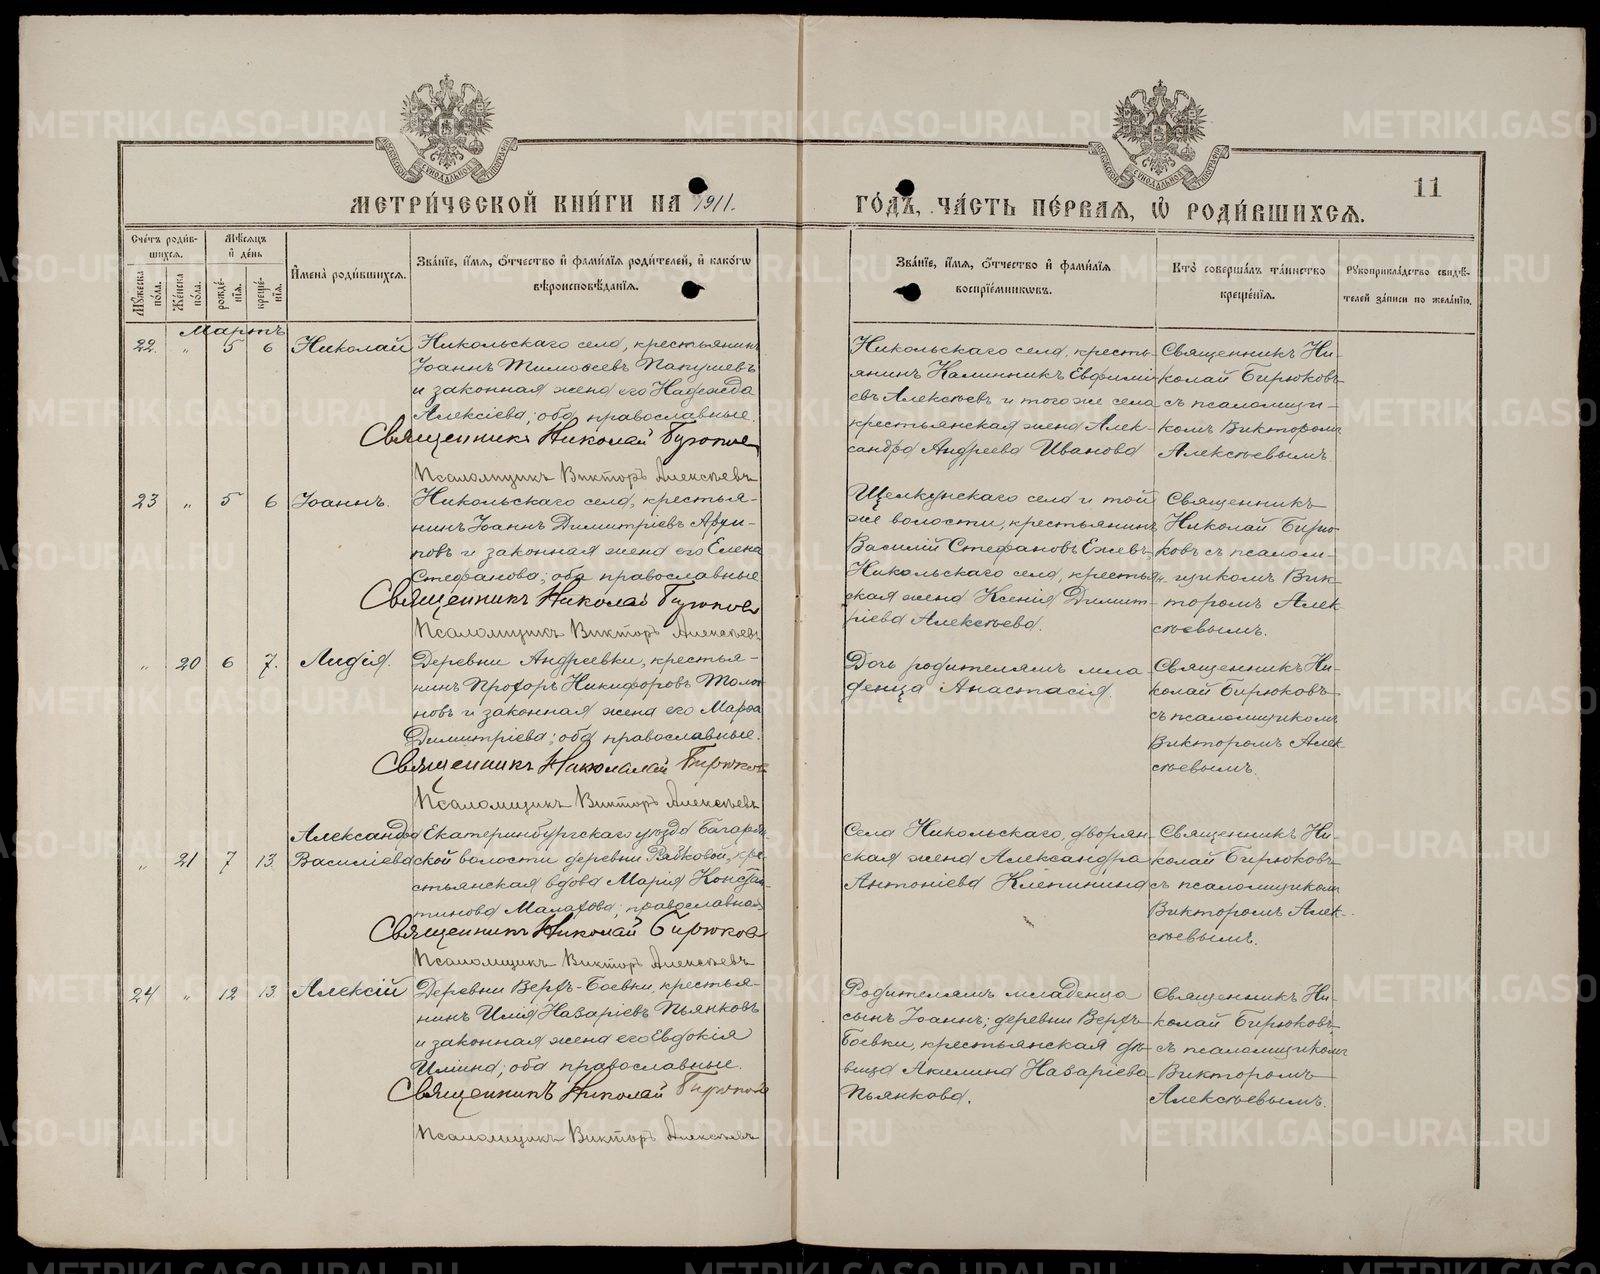 МЕТРИ́ЧЕСКОЙ КНИ́ГИ НА 1911.
ГО́ДЪ, ЧА́СТЬ ПЕ́РВАЯ, Ѡ РОДИ́ВШИХСЯ.
11
Сче́тъ роди́в-
шихся.
Му́жеска по́ла.
Же́нска по́ла.
Мѣ́сяцъ
и де́нь
рожде́-
нія.
креще́-
нія.
Имена̀ роди́вшихся.
Зва́ніе, и́мя, о́тчество и фами́лія роди́телей, и како́гѡ
вѣроисповѣ́данія.
Зва́ніе, и́мя, о́тчество и фами́лія
воспріе́мниковъ.
Кто̀ соверша́лъ та́инство
креще́нія.
Рукоприкла́дство свидѣ́-
телей за́писи по жела́нію.
Мартъ
22. „ 5 6 Николай
Никольскаго села, крестьянинъ
Іоаннъ Тимоѳеевъ Папушевъ
и законная жена его Надежда
Алексіева; оба православные.
Священникъ Николай Бирюков
Псаломщикъ Викторъ Алексѣевъ
Никольскаго села, кресть-
янинъ Калинникъ Евфимі-
евъ Алексѣевъ и того же села
крестьянская жена Алек-
сандра Андреева Иванова
Священникъ Ни-
колай Бирюковъ
съ псаломщи-
комъ Викторомъ
Алексѣевымъ.
23 „ 5 6 Іоаннъ.
Никольскаго села, крестья-
нинъ Іоаннъ Димитріевъ
и законная жена его Елена
Стефанова; оба православные
Священникъ Николай Бирюковъ
Псаломщикъ Викторъ Алексѣевъ
Щелкунскаго села и той
же волости, крестьянинъ
Василій Стефановъ Ежевъ,
Никольскаго села, крестьян.
ская жена Ксенія Димит-
ріева Алексѣева.
Священникъ
Николай Бирю-
ковъ съ псалом-
щикомъ Вик-
торомъ Алек-
сѣевымъ.
„ 20 6 7. Лидія.
Деревни Андреевки, крестья-
нинъ Прохоръ Никифоровъ
и законная жена его Марѳа
Димитріева; оба православные.
Священникъ Николай Бирюков
Псаломщикъ Викторъ Алексѣевъ
Дочь родителямъ мла-
денца Анастасія.
Священникъ Ни-
колай Бирюковъ
съ псаломщикомъ
Викторомъ Алек-
сѣевымъ.
„ 21 7 13. Александра
Василіева
Екатеринбургскаго уѣзда Багаряк-
ской волости деревни Рябковой, кре-
стьянская вдова Марія Констан-
тинова Малахова; православная
Священникъ Николай Бирюков
Псаломщикъ Викторъ Алексѣевъ
Села Никольскаго, дворян-
ская жена Александра
Антоніева Клепинина
Священникъ Ни-
колай Бирюковъ
съ псаломщикомъ
Викторомъ Алек-
сѣевымъ.
24 „ 12 13. Алексій
Деревни Верхъ-Боевки, крестья-
нинъ Илія Назаріевъ Пьянковъ
и законная жена его Евдокія
Илиина; оба православные.
Священникъ Николай Бирюков
Псаломщикъ Викторъ Алексѣевъ
Родителямъ младенца
сынъ Іоаннъ; деревни Верхъ-
Боевки, крестьянская дѣ-
вица Акилина Назаріева
Пьянкова.
Священникъ Ни-
колай Бирюковъ
съ псаломщикомъ
Викторомъ
Алексѣевымъ.
METRIKI.GASO-URAL.RU